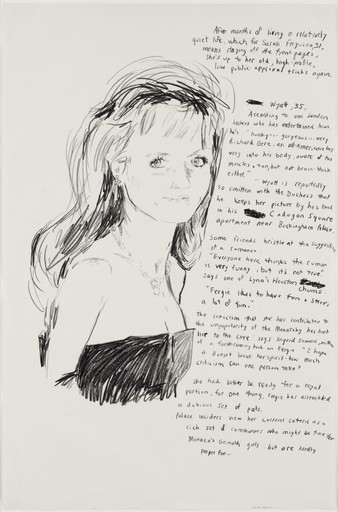 After months of living a relatively
quiet life, which for Sarah Ferguson, 31,
means staying off the front pages,
she's up to her old, high-profile,
low public approval tricks again.
Wyatt, 35.
According to one London
hostess who has entertained him
he's "hunky... gorgeous... very
Richard Gere, an all-American boy
very into his body, aware of his
muscles + tan, but not brain-thick
either."
Wyatt is reportedly
so smitten with the Duchess that
he keeps her picture by his bed
in his Cadogan Square
apartment near Buckingham Palace.
Some friends bristle at the suggestion
of a romance.
"Everyone here thinks the rumor
is very funny, but it's not true"
says one of Lynn's Houston chums.
"Fergie likes to have fun + Steve's
a lot of fun."
The criticism that she has contributed to
the unpopularity of the Monarchy has hurt
her to the core says Ingrid Seward, author
of a forthcoming book on Fergie "I hope
it doesn't break her spirit- how much
criticism can one person take?
she had better be ready for a royal
portion, for one thing, Fergie has assembled
a dubious set of pals.
Palace insiders view her current coterie as a
rich set of commoners who might be fine for
Monaco's Grimaldi girls but are hardly
proper for-